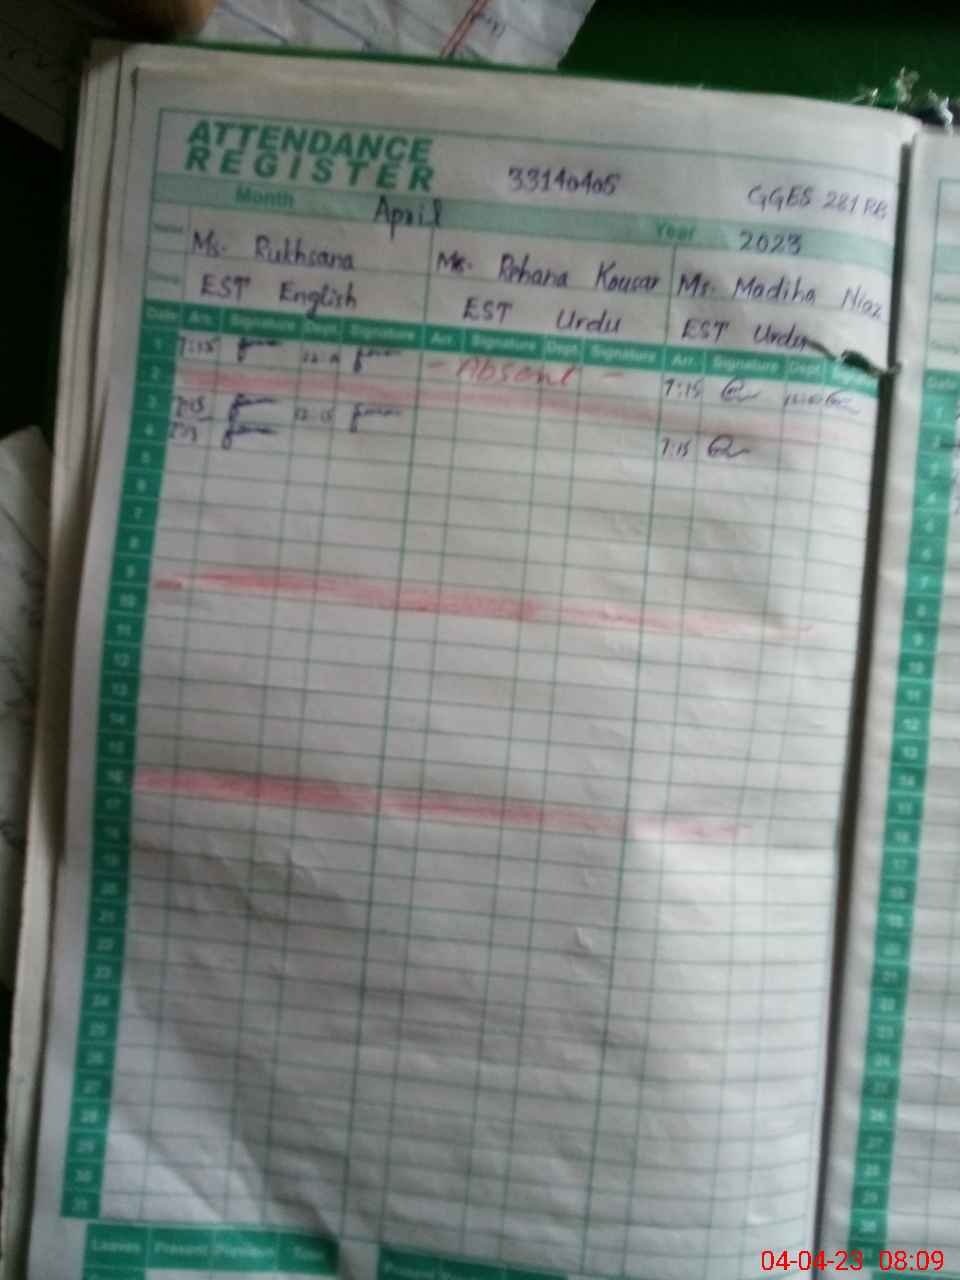 ATTENDANCE
REGISTER
33140405
GGES 281 RB
Month April Year 2023
Name Ms. Rukhsana Ms. Rehana Kousar Ms. Madiha Niaz
EST English EST Urdu EST Urdu
Date Arr. Signature Dept. Signature Arr. Signature Dept. Signature Arr. Signature Dept.
1 7:15 - Absent - 7:15
2
3 7:15 12:15
4 7:15
5
6
7
8
9
10
11
12
13
14
15
16
17
18
19
20
21
22
23
24
25
26
27
28
29
30
31
Leaves Present Previous Total
04-04-23 08:09